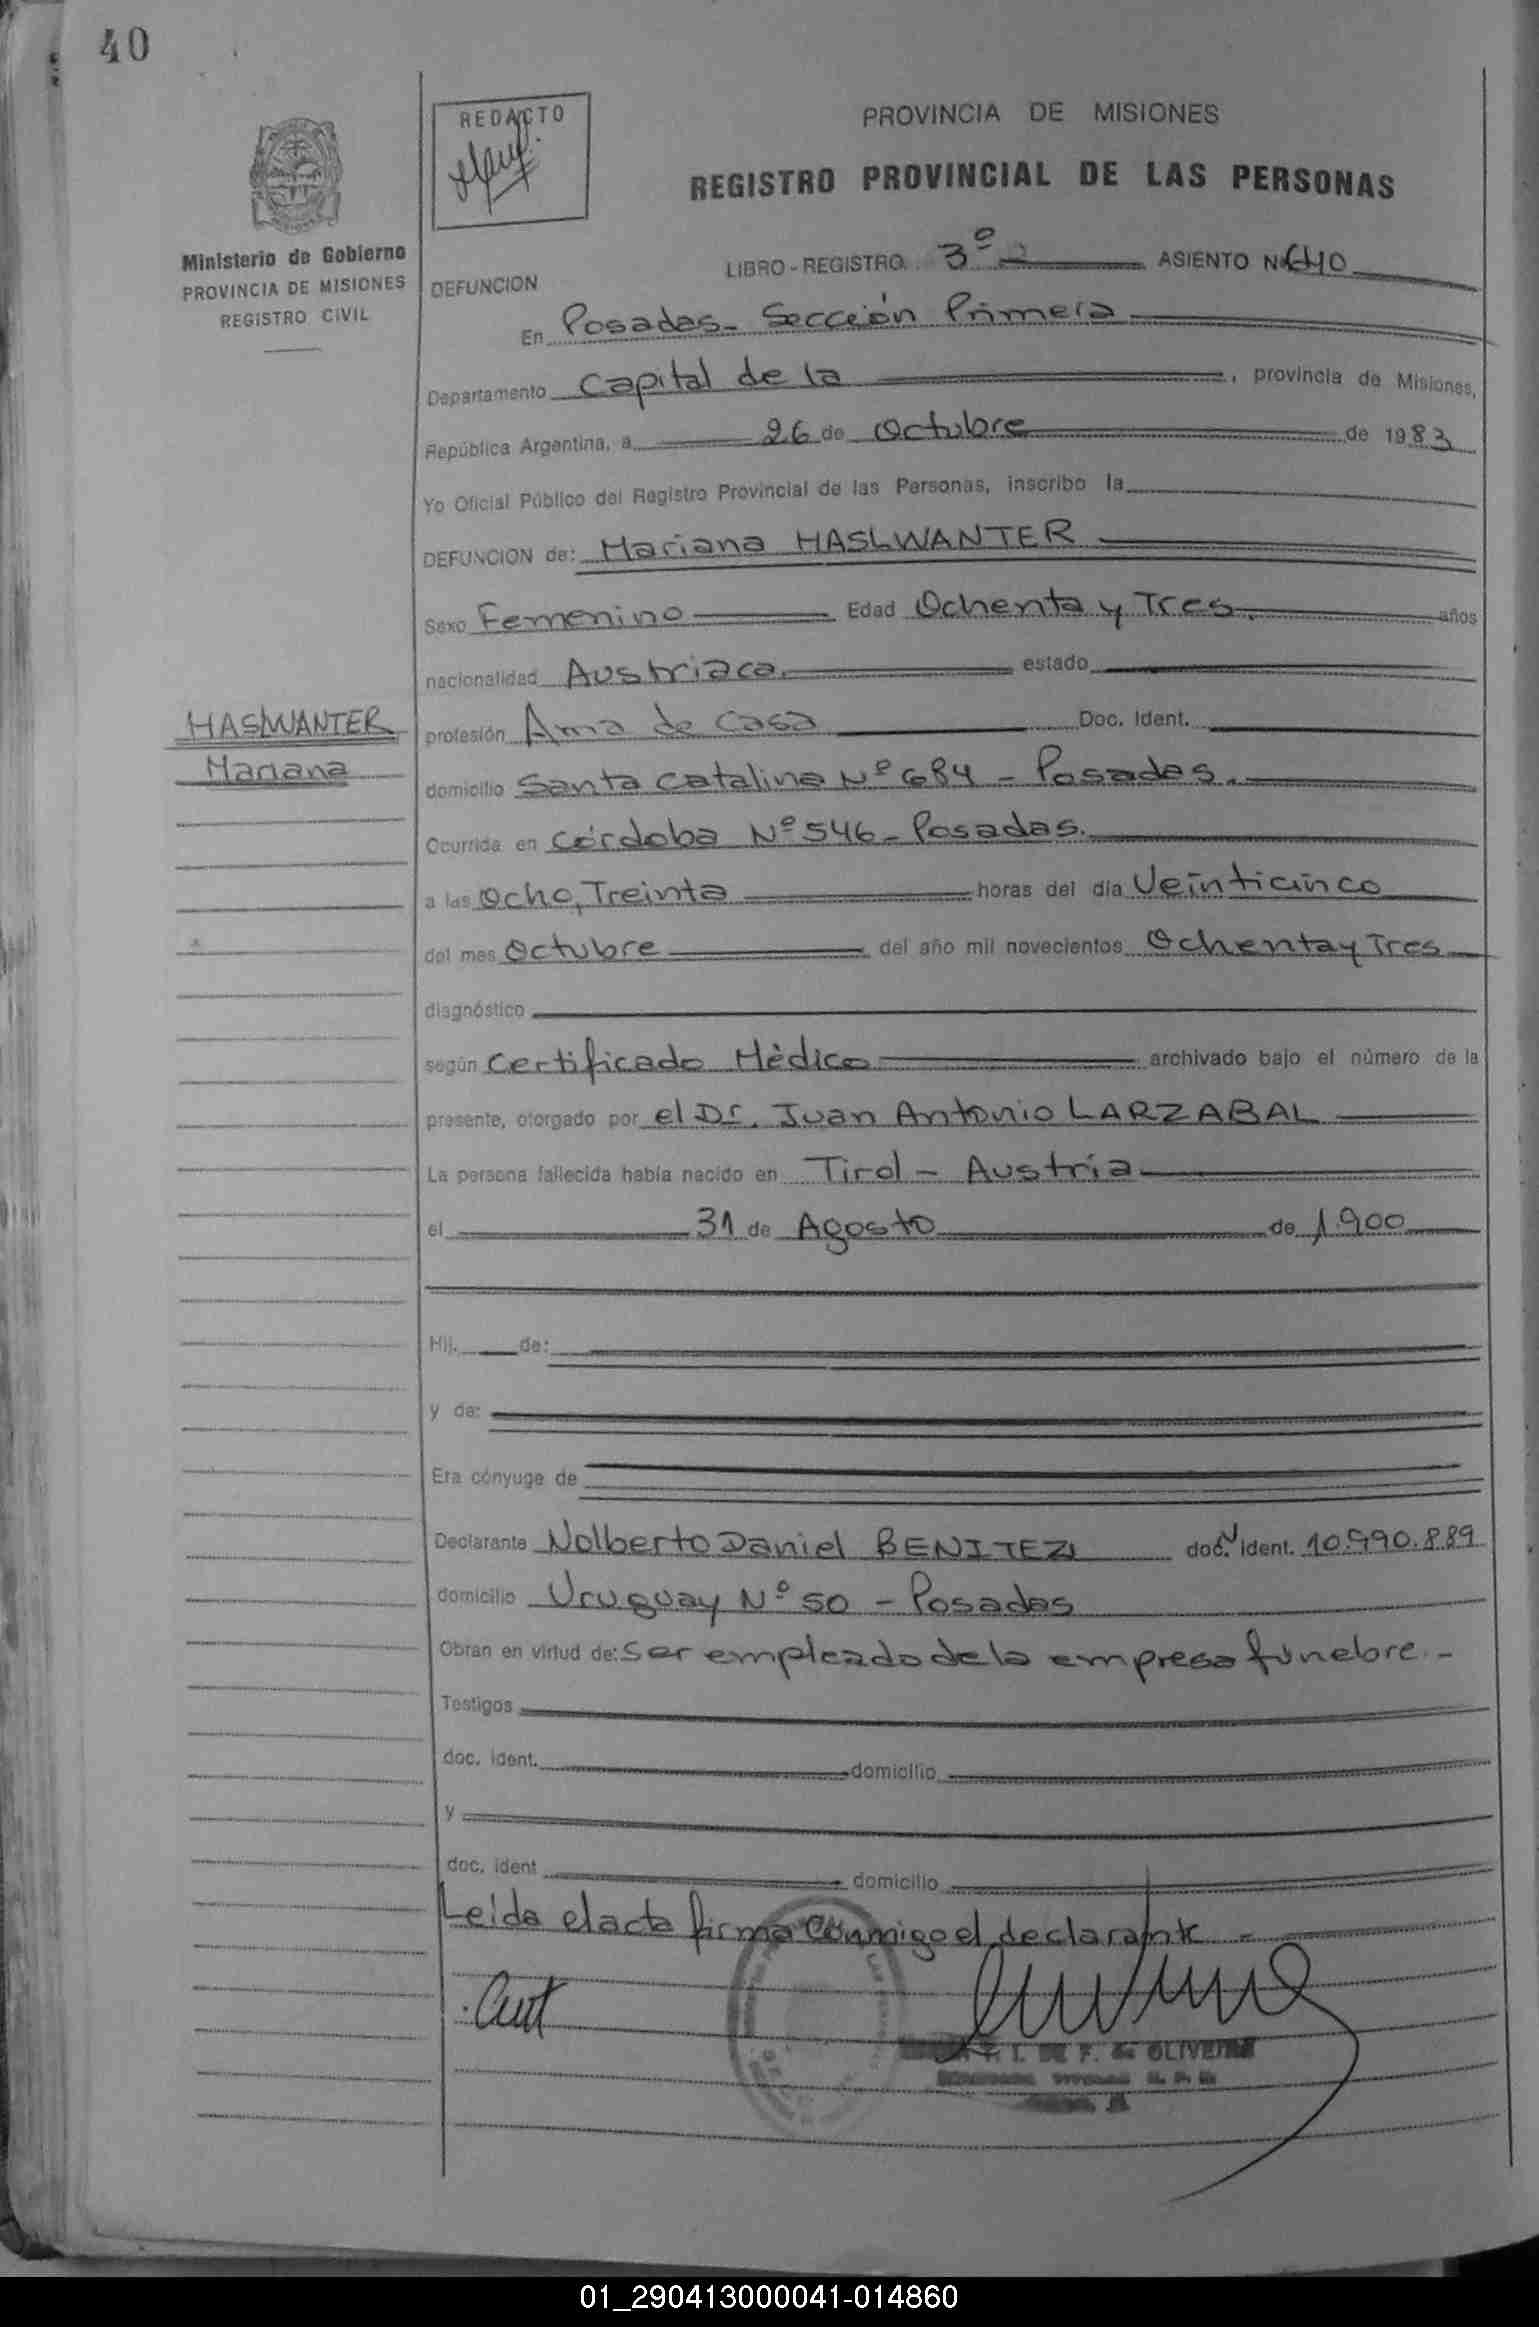 40
REDACTO
PROVINCIA DE MISIONES
REGISTRO PROVINCIAL DE LAS PERSONAS
Ministerio de Gobierno
PROVINCIA DE MISIONES
REGISTRO CIVIL
LIBRO - REGISTRO 3º ASIENTO Nº 640
DEFUNCION
En Posadas - Sección Primera
Departamento Capital de la , provincia de Misiones,
República Argentina, a 26 de Octubre de 1983
Yo Oficial Público del Registro Provincial de las Personas, inscribo la
DEFUNCION de: Mariana HASLWANTER
Sexo Femenino Edad Ochenta y Tres. años
nacionalidad Austriaca. estado
HASLWANTER
Mariana
profesión Ama de Casa Doc. Ident.
domicilio Santa Catalina Nº 684 - Posadas.
Ocurrida en Córdoba Nº 546 - Posadas.
a las Ocho, Treinta horas del día Veinticinco
del mes Octubre del año mil novecientos Ochenta y Tres
diagnóstico
según Certificado Mèdico archivado bajo el número de la
presente, otorgado por el Dr. Juan Antonio LARZABAL
La persona fallecida había nacido en Tirol - Austria
el 31 de Agosto de 1.900
Hij. de:
y de:
Era cónyuge de
Declarante Nolberto Daniel BENITEZ doc. ident. 10.990.889
domicilio Uruguay Nº 50 - Posadas
Obran en virtud de: Ser empleado de la empresa fúnebre.-
Testigos
doc. ident. domicilio
y
doc. ident domicilio
Leida el acta firma conmigo el declarante -
DE F. de OLIVEIRA
01_290413000041-014860